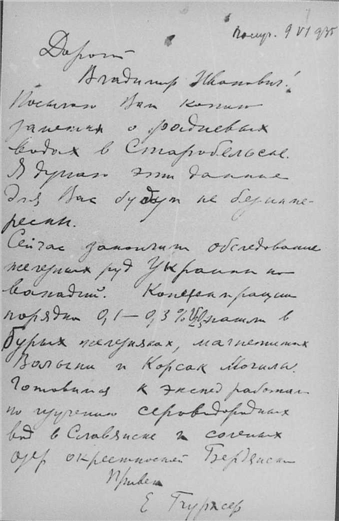 получ. 9 VI 935
Дорогой
Владимир Иванович!
Посылаю Вам копию
заметки о радиевых
водах в Старобельске.
Я думаю эти данные
для Вас будут не безинте-
ресны.
Сейчас закончили обследование
железных руд Украины на
ванадий. Концентрации
порядка 0,1 – 0,3 % нашли в
бурых железняках, магнетитах
Волыни и Корсак Могилы.
Готовимся к экспед. работам
по изучению сероводородных
вод в Славянске и соленых
озер окрестностей Бердянска
Привет
Е Бурксер